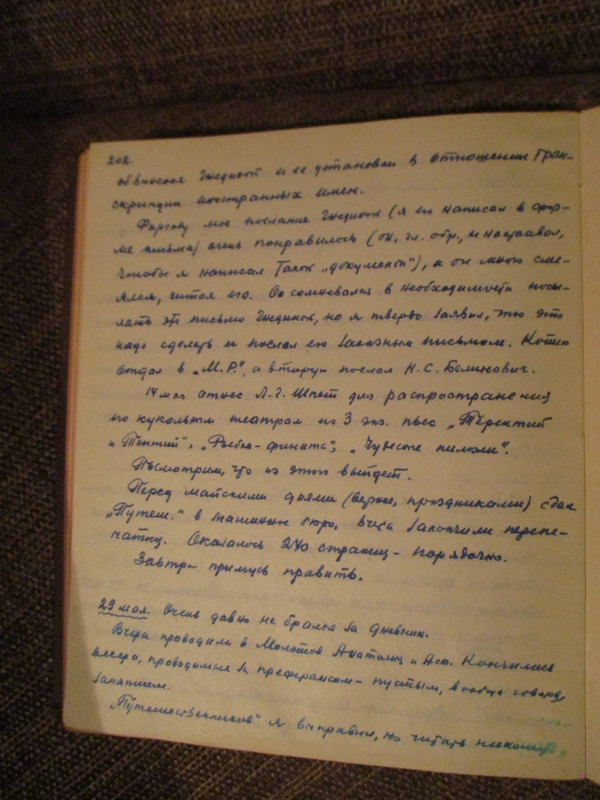 202.
обвиняя Гнединой и ее установки в отношении Тран-
скрипции иностранных имен.
Фирсову мое послание Гнединой (я его написал в фор-
ме письма) очень понравилось (он, гл. обр., и настаивал,
чтобы я написал такой „документ"), и он много сме-
ялся, читая его. Он сомневался в необходимости посы-
лать это письмо Гнединой, но я твердо заявил, что это
надо сделать и послал его заказным письмом. Копию
отдал в „М.Р.", а вторую послал Н.С. Белинович.
14 мая отнес Л.Г. Шпет для распространения
по кукольным театрам по 3 экз. пьес „Терентий
и Ментий", „Рыбка-финита", „Чудесные пилюли".
Посмотрим, что из этого выйдет.
Перед майскими днями (вернее, праздниками) сдал
„Путеш." в машинное бюро, вчера закончили перепе-
чатку. Оказалось 240 страниц - порядочно.
Завтра примусь править.
29 мая. Очень давно не брался за дневник.
Вчера проводили в Молотов Анатолия и Асю. Кончились
вечера, проводимые за преферансом - пустым, вообще говоря,
занятием.
„Путешественников" я выправил, но читать